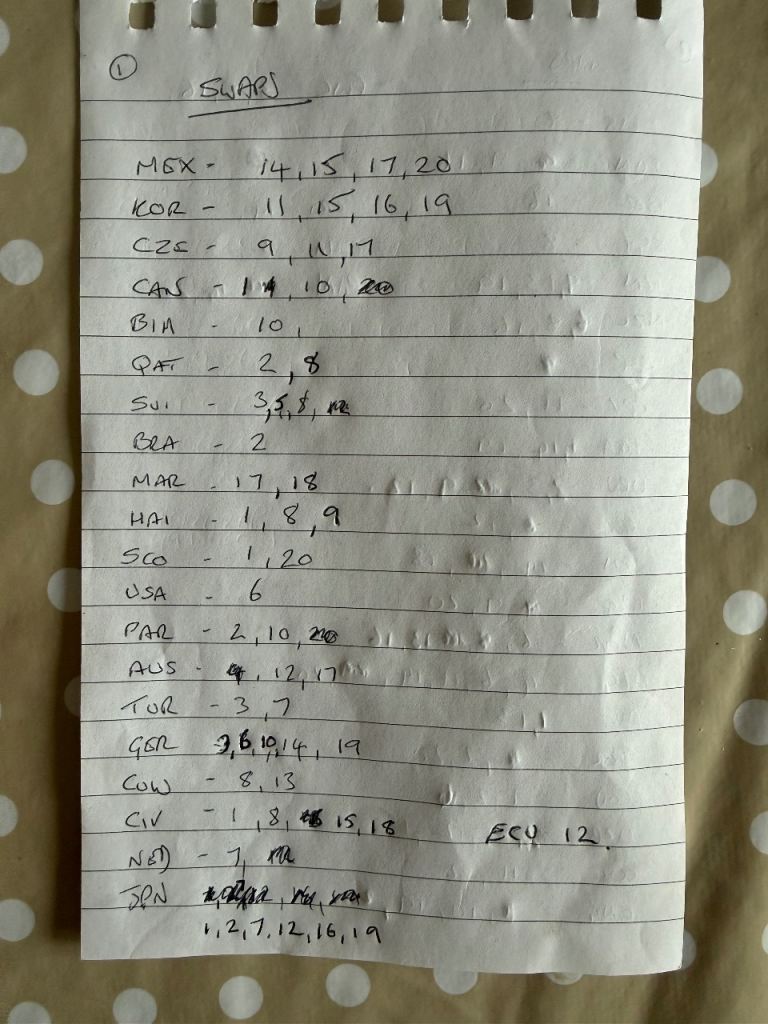 ①
SWAPS
MEX - 14, 15, 17, 20
KOR - 11, 15, 16, 19
CZE - 9, 11, 17
CAN - 10,
BIH - 10,
QAT - 2, 8
SUI - 3, 5, 8,
BRA - 2
MAR - 17, 18
HAI - 1, 8, 9
SCO - 1, 20
USA - 6
PAR - 2, 10,
AUS - , 12, 17
TUR - 3, 7
GER - 3, 6, 10, 14, 19
CUW - 8, 13
CIV - 1, 8, 15, 18
ECU 12.
NED - 7,
JPN
1, 2, 7, 12, 16, 19